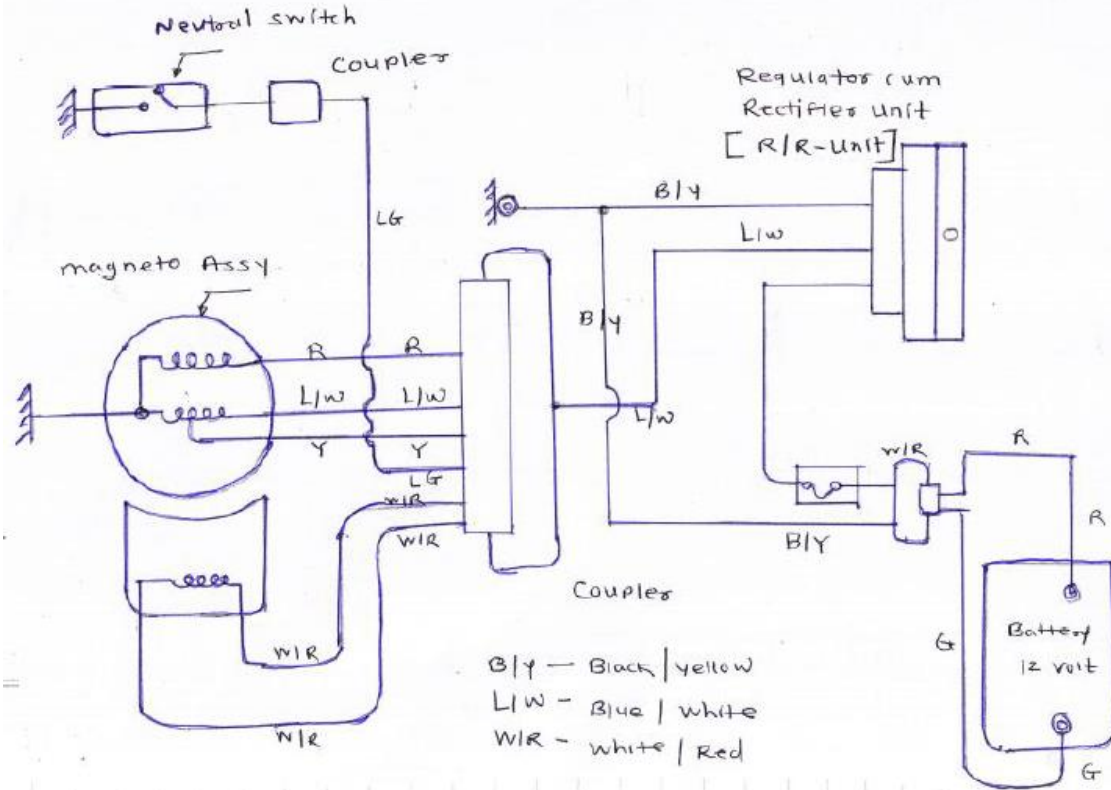 Neutral switch
Coupler
Regulator cum
Rectifier unit
[ R/R-Unit ]
B/Y
L/W
O
LG
magneto Assy
B/Y
R
R
L/W
L/W
L/W
Y
Y
LG
W/R
W/R
W/R
R
R
B/Y
Coupler
G
Battery
12 volt
W/R
B/Y — Black / yellow
L/W - Blue / white
W/R - white / Red
W/R
G